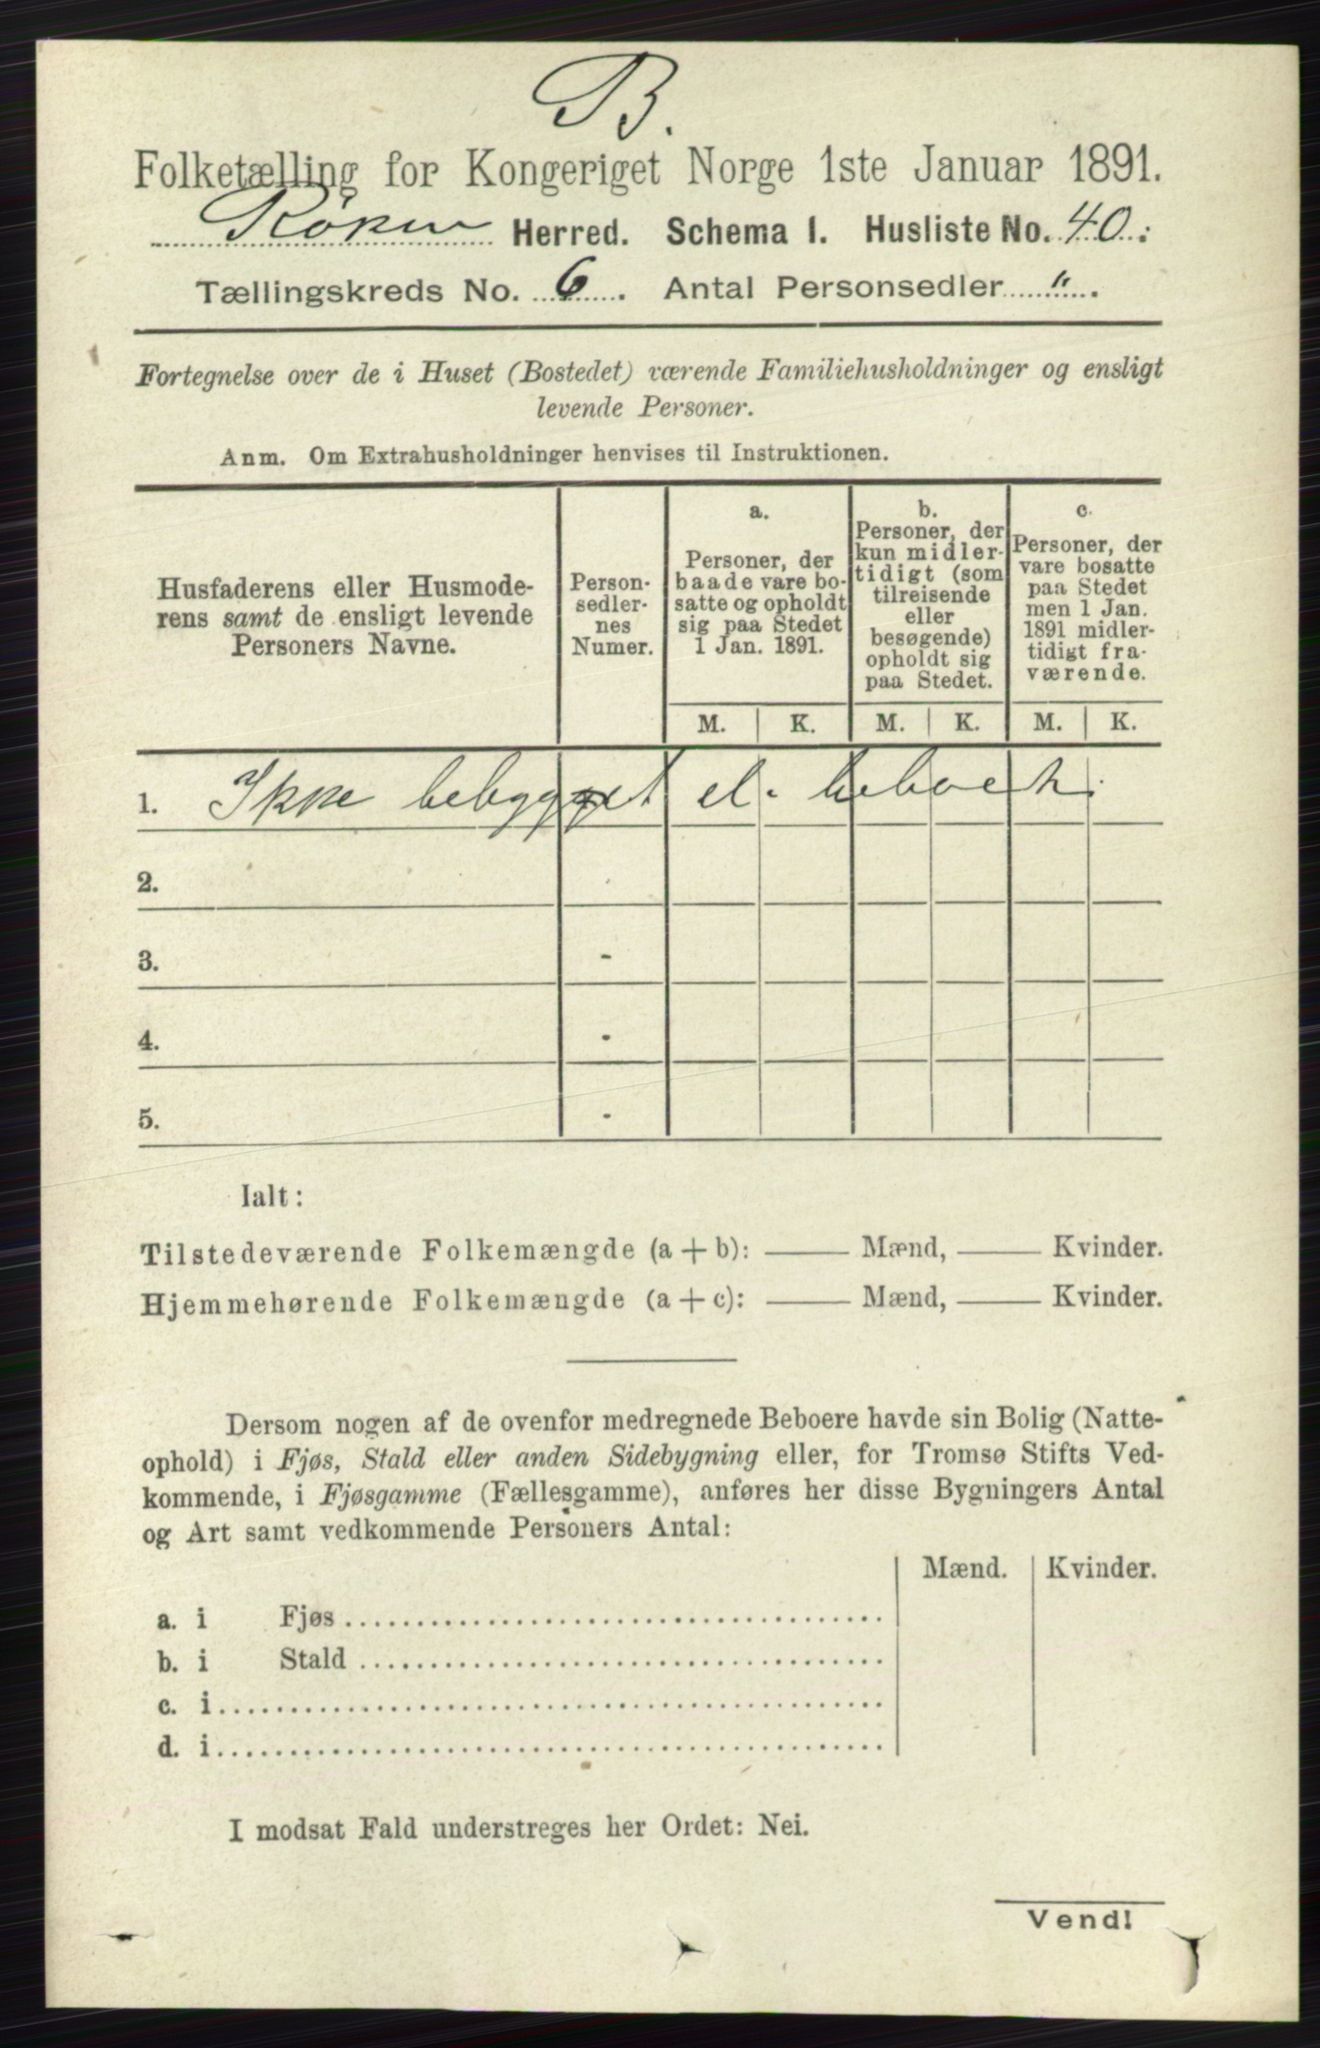 B.
Folketælling for Kongeriget Norge 1ste Januar 1891.
Röken Herred. Schema I. Husliste No. 40.
Tællingskreds No. 6. Antal Personsedler " .
Fortegnelse over de i Huset (Bostedet) værende Familiehusholdninger og ensligt
levende Personer.
Anm. Om Extrahusholdninger henvises til Instruktionen.
Husfaderens eller Husmode-
rens samt de ensligt levende
Personers Navne.
Person-
sedler-
nes
Numer.
a.
Personer, der
baade vare bo-
satte og opholdt
sig paa Stedet
1 Jan. 1891.
b.
Personer, der
kun midler-
tidigt (som
tilreisende
eller
besøgende)
opholdt sig
paa Stedet.
c.
Personer, der
vare bosatte
paa Stedet
men 1 Jan.
1891 midler-
tidigt fra-
værende.
M. K. M. K. M. K.
1. Ikke bebygget el. beboet.
2.
3. -
4. -
5. -
Ialt:
Tilstedeværende Folkemængde (a + b): —— Mænd, —— Kvinder.
Hjemmehørende Folkemængde (a + c): —— Mænd, —— Kvinder.
Dersom nogen af de ovenfor medregnede Beboere havde sin Bolig (Natte-
ophold) i Fjøs, Stald eller anden Sidebygning eller, for Tromsø Stifts Ved-
kommende, i Fjøsgamme (Fællesgamme), anføres her disse Bygningers Antal
og Art samt vedkommende Personers Antal:
Mænd. Kvinder.
a. i Fjøs
b. i Stald
c. i
d. i
I modsat Fald understreges her Ordet: Nei.
Vend!